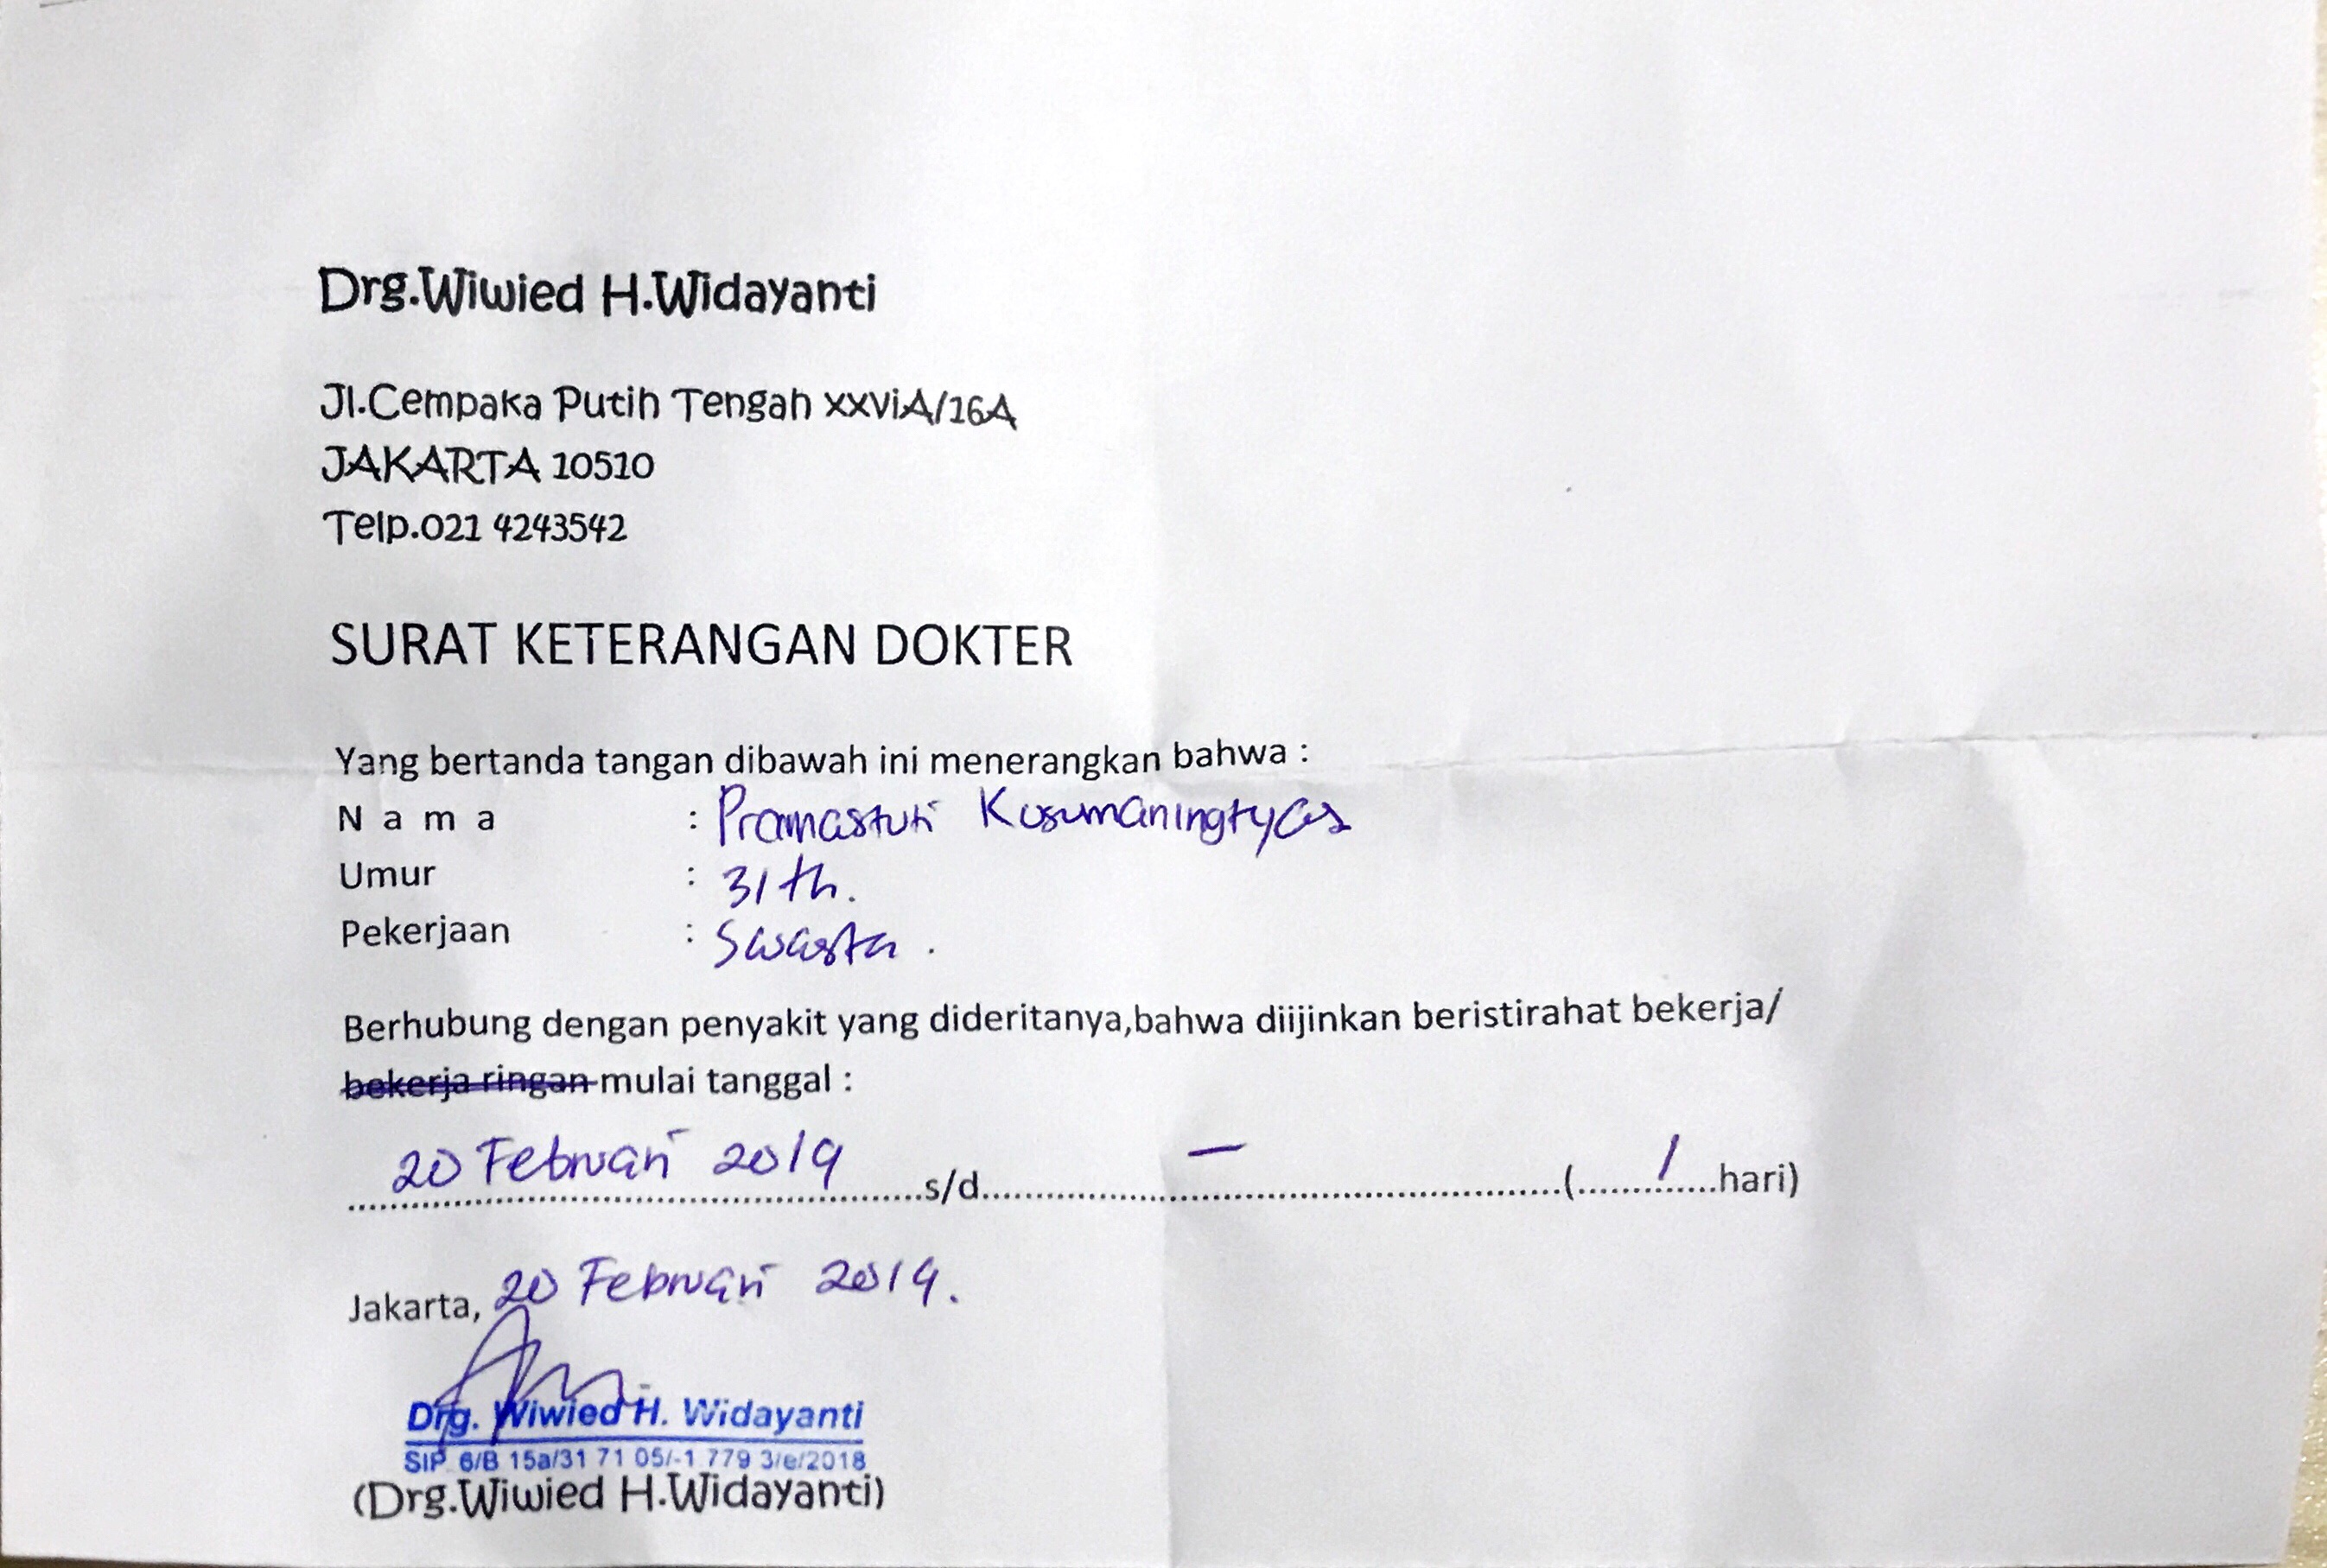 Drg.Wiwied H.Widayanti
Jl.Cempaka Putih Tengah xxviA/16A
JAKARTA 10510
Telp.021 4243542
SURAT KETERANGAN DOKTER
Yang bertanda tangan dibawah ini menerangkan bahwa :
N a m a : Pramastuti Kusumaningtyas
Umur : 31 th.
Pekerjaan : Swasta .
Berhubung dengan penyakit yang dideritanya,bahwa diijinkan beristirahat bekerja/
bekerja ringan mulai tanggal :
20 Februari 2019 s/d - ( 1 hari)
Jakarta, 20 Februari 2019.
Drg. Wiwied H. Widayanti
SIP. 6/B 15a/31 71 05/-1 779 3/e/2018
(Drg.Wiwied H.Widayanti)